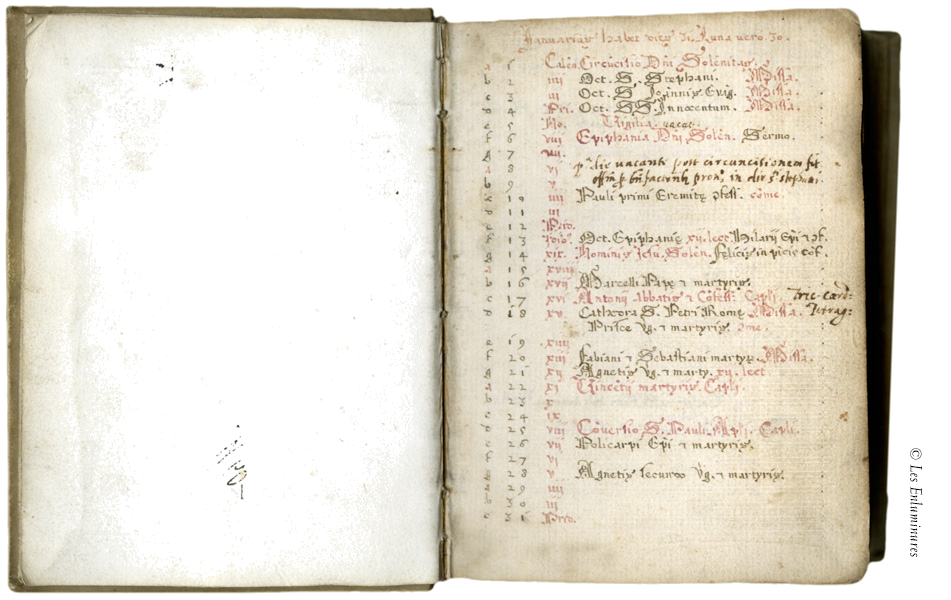 Januarius habet dies 31. Luna vero. 30.
a 1 Calen. Circucisio Dni Solenitas.
b 2 iiii Oct. S. Stephani. Missa.
c 3 iii Oct. S Joannis Evãg. Missa.
d 4 Pri. Oct. SS Innocentum. Missa.
e 5 No. Vigilia. vacat.
f 6 viii Epiphania Dni Solẽn. Sermo.
g 7 vii.
a 8 vi die vacanti post circuncisionem
b 9 v in die sti stephani.
c 10 iiii Pauli primi Eremitę cõme.
d 11 iii
e 12 Prid.
f 13 Idib9. Oct. Epiphanię xii. lect. Hilarij Epi
g 14 xix. Nominis Jesu. Solen. Felicis in picis cõf.
a 15 xviii
b 16 xvii Marcelli Papę ⁊ martyris.
c 17 xvi Antonii Abbatis ⁊ Cõfess. Capli.
d 18 xv Cathedra S. Petri Romę Missa.
Priscę Vg. ⁊ martyris.
e 19 xiiii
f 20 xiii Fabiani ⁊ Sebastiani martyrę. Missa.
g 21 xii Agnetis Vg. ⁊ marty. xii. lect
a 22 xi Vincẽtij martyris. Capli.
b 23 x
c 24 ix
d 25 viii Cõversio S. Pauli. Apli. Capli.
e 26 vii Policarpi Epi ⁊ martyris.
f 27 vi
g 28 v Agnetis secundo Vg. ⁊ martyris.
a 29 iiii
b 30 iii
c 31 Prid.
© Les Enluminures